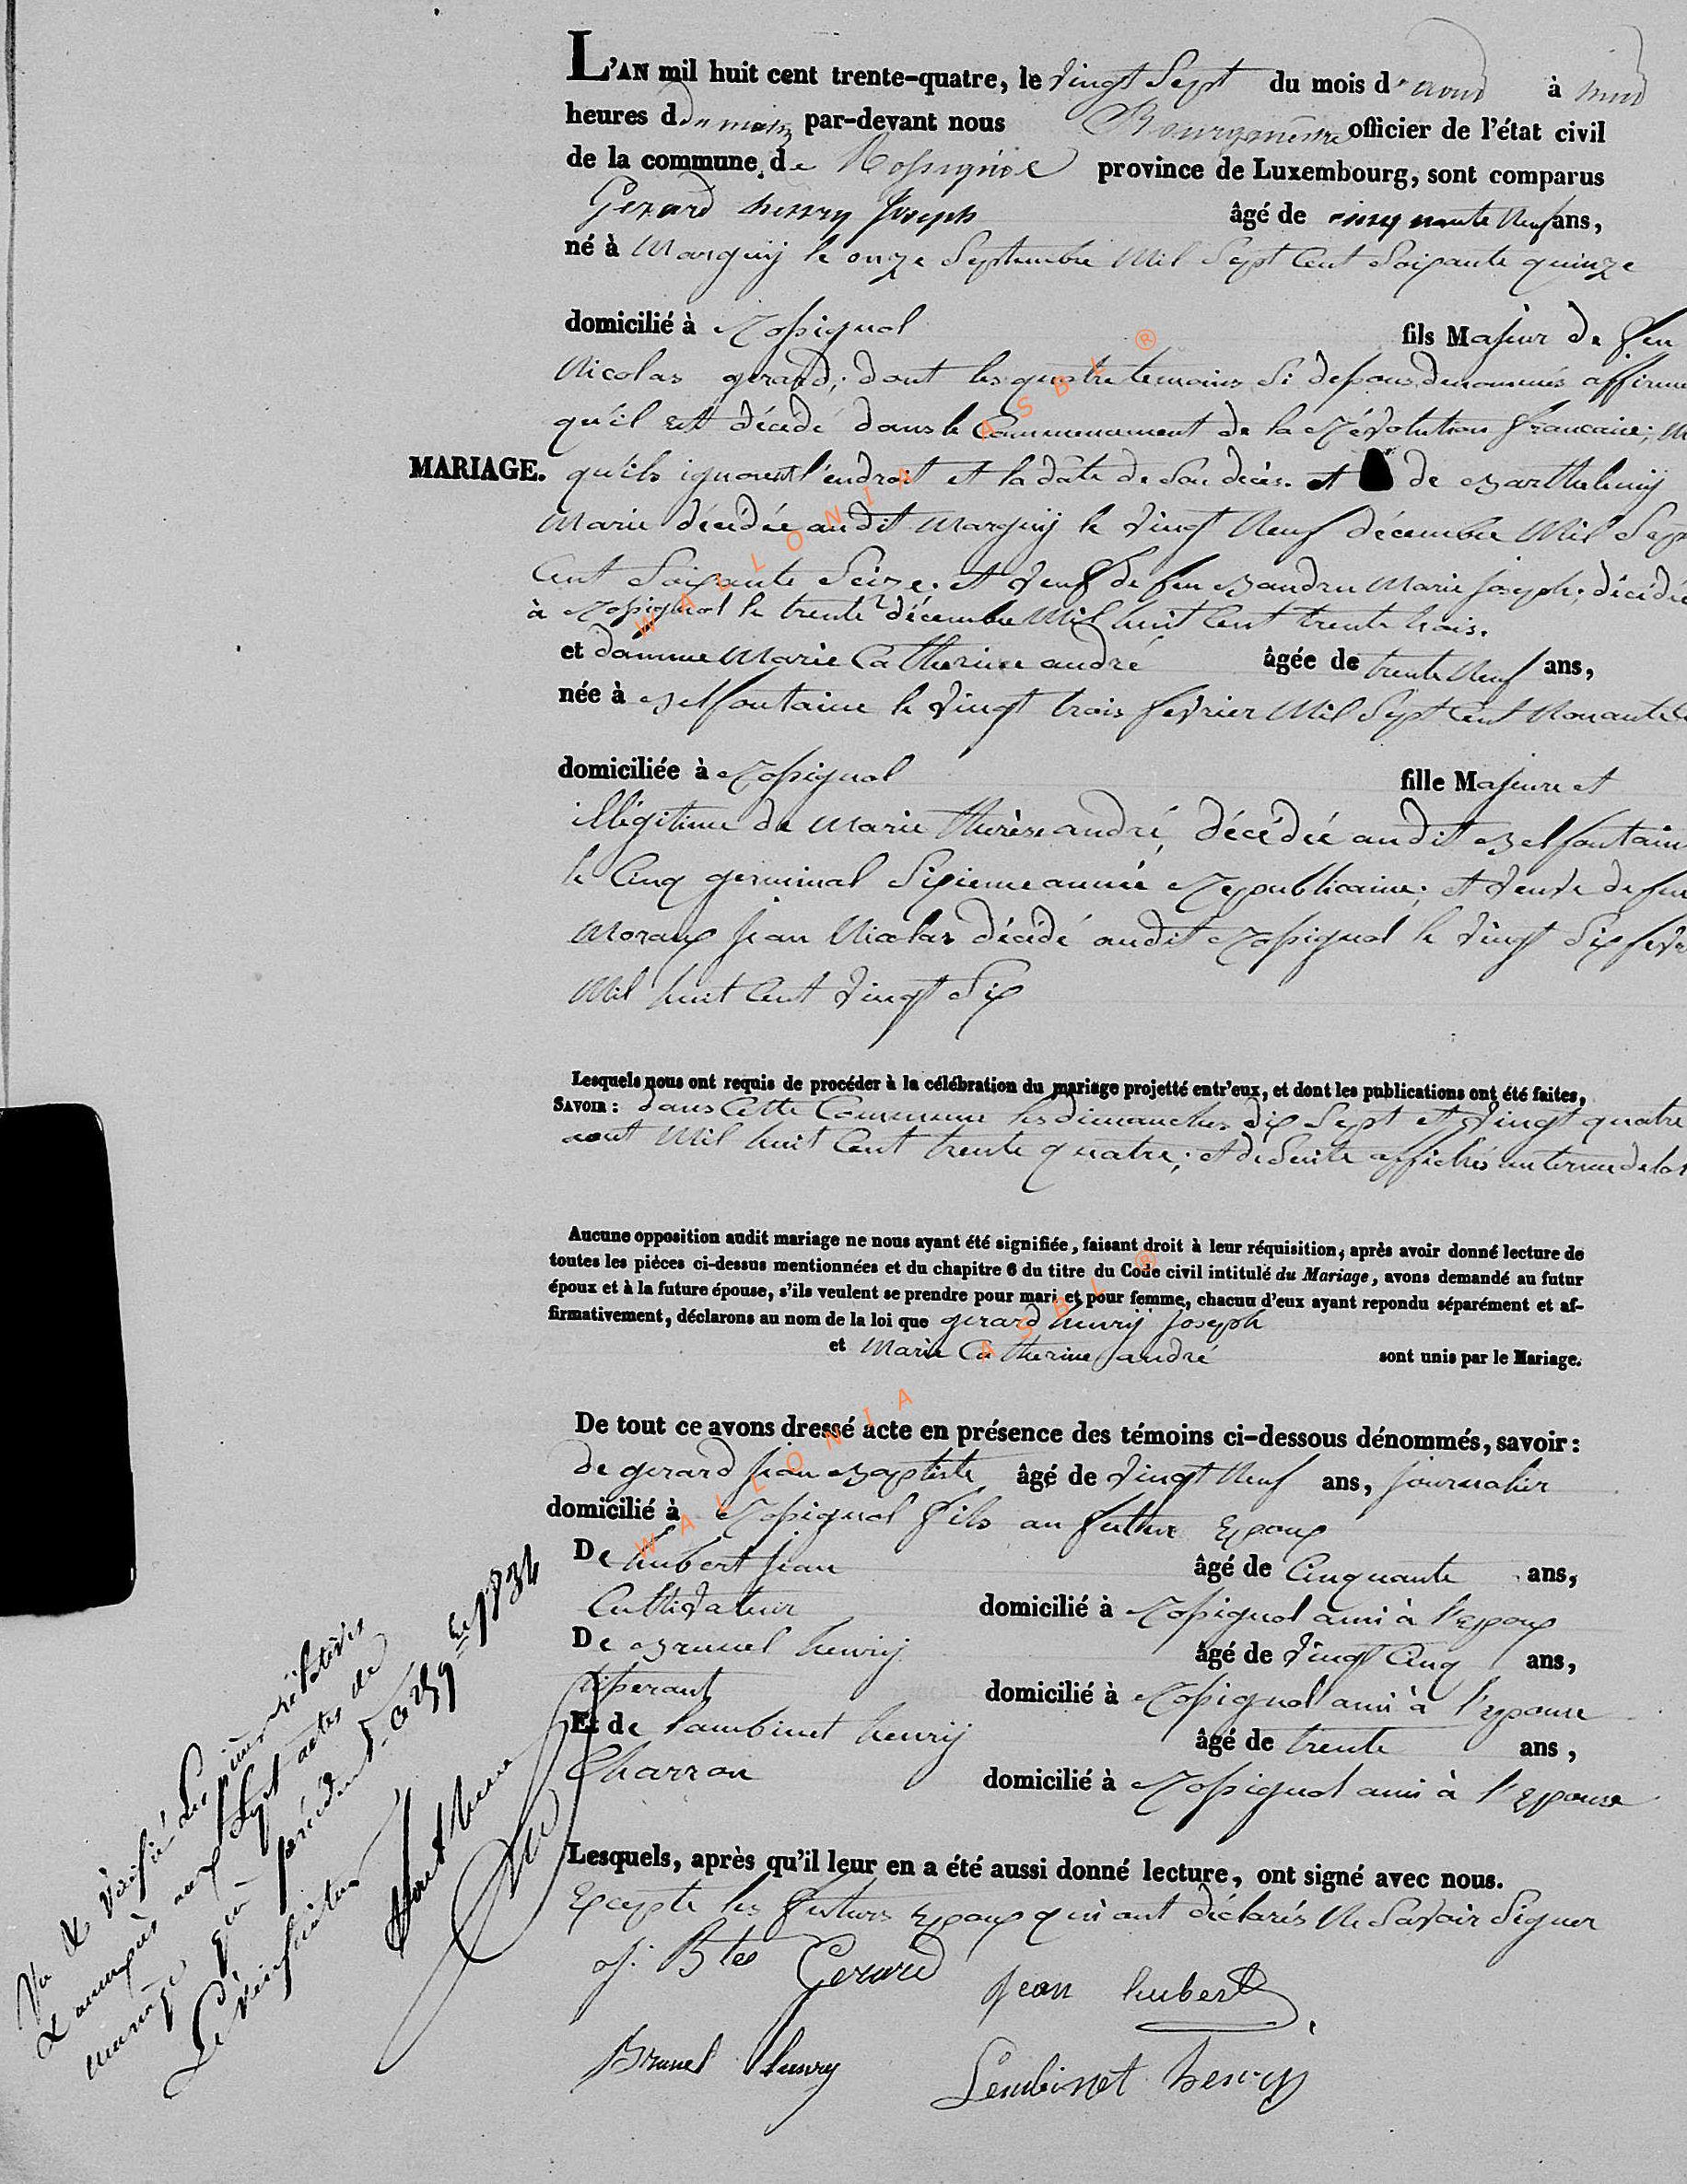 L'AN mil huit cent trente-quatre, le vingt Sept du mois d'aout à
heures du matin par-devant nous Bourguemestre officier de l'état civil
de la commune de Rossignol province de Luxembourg, sont comparus
Gerard henry Joseph âgé de cinquante neuf ans,
né à Marguÿ le onze Septembre Mil Sept Cent Soixante quinze
domicilié à Rossignol fils Majeur de feu
Nicolas gerard; dont les quatre temoins Si dessous denommés affirme
qu'il est décédé dans le Commencement de la Révolution francaise;
MARIAGE.
qu'ils ignorent l'endroit et la date de Son decès. et de Barthelemÿ
Marie décédée audit Marguÿ le vingt Neuf décembre Mil Sept
Cent Soixante Seize; et veuf de feu Baudru Marie Joseph; décédée
à Rossignol le trente décembre Mil huit Cent trente trois.
et damme Marie Catherine andré âgée de trente Neuf ans,
née à Belfontaine le vingt trois fevrier Mil Sept Cent Nonante
domiciliée à Rossignol fille Majeure et
illégitime de Marie therèse andré, décédée audit Belfontain
le Cinq germinal Sixieme année Republicaine; et veuve de feu
Moraux Jean Nicolas décédé audit Rossignol le vingt Six fevr
Mil huit Cent vingt Six
Lesquels nous ont requis de procéder à la célébration du mariage projetté entr'eux, et dont les publications ont été faites,
SAVOIR: dans Cette Commune les dimanches dix Sept et vingt quatre
aout Mil huit Cent trente quatre; et de Suite affichés au terme de la
Aucune opposition audit mariage ne nous ayant été signifiée, faisant droit à leur réquisition, après avoir donné lecture de
toutes les pièces ci-dessus mentionnées et du chapitre 6 du titre du Code civil intitulé du Mariage, avons demandé au futur
époux et à la future épouse, s'ils veulent se prendre pour mari et pour femme, chacun d'eux ayant repondu séparément et af-
firmativement, déclarons au nom de la loi que gerard henrÿ Joseph
et Marie Catherine andré sont unis par le Mariage.
De tout ce avons dressé acte en présence des témoins ci-dessous dénommés, savoir:
de gerard Jean Baptiste âgé de vingt Neuf ans, Journalier
domicilié à Rossignol fils au futur Epoux
De hubert Jean âgé de Cinquante ans,
Cultivateur domicilié à Rossignol ami à l'Epoux
De Brunel henrÿ âgé de vingt Cinq ans,
domicilié à Rossignol ami à l'epouse
Et de lambinet henrÿ âgé de trente ans,
Charron domicilié à Rossignol ami à l'Epouse
Lesquels, après qu'il leur en a été aussi donné lecture, ont signé avec nous.
Excepté les futurs Epoux qui ont déclarés Ne Savoir Signer
J: Bte Gerard Jean hubert
Brunel henry Lembinet henry
Vu & Vérifié Les pièces relatives
& annexées aux Sept actes de
mariage qui précèdent
WALLONIA ASBL ®
WALLONIA ASBL ®